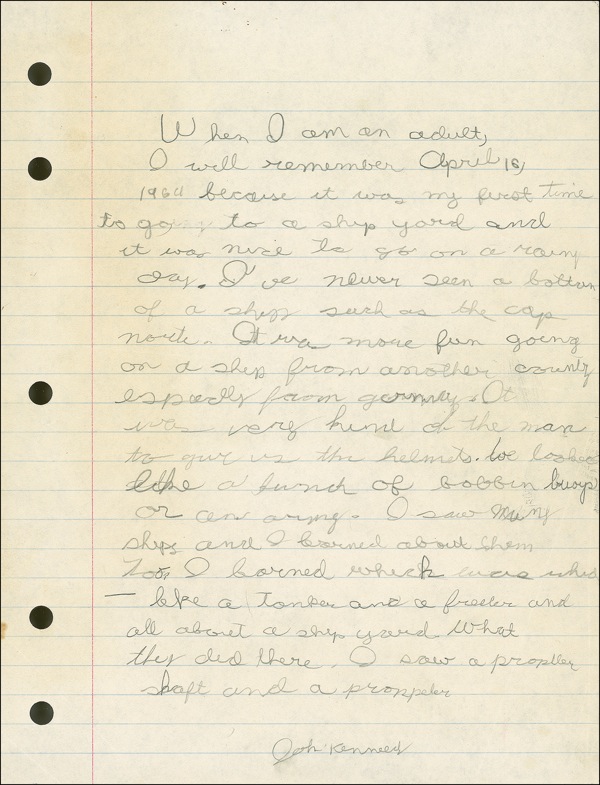 When I am an adult,
I will remember April 16,
196 because it was my first time
to going to a ship yard and
it was nice to go on a rainy
day. I've never seen a bottom
of a ship such as the cap
norte. It was more fun going
on a ship from another county
espaclly from germay. It
was very kind of the man
to give us the helmets. We looked
like a bunch of bobbin buoys
or an army. I saw many
ships and I larned about them
too, I larned which was
— like a tanker and a freeler and
all about a ship yard what
they did there. I saw a propller
shaft and a propeler